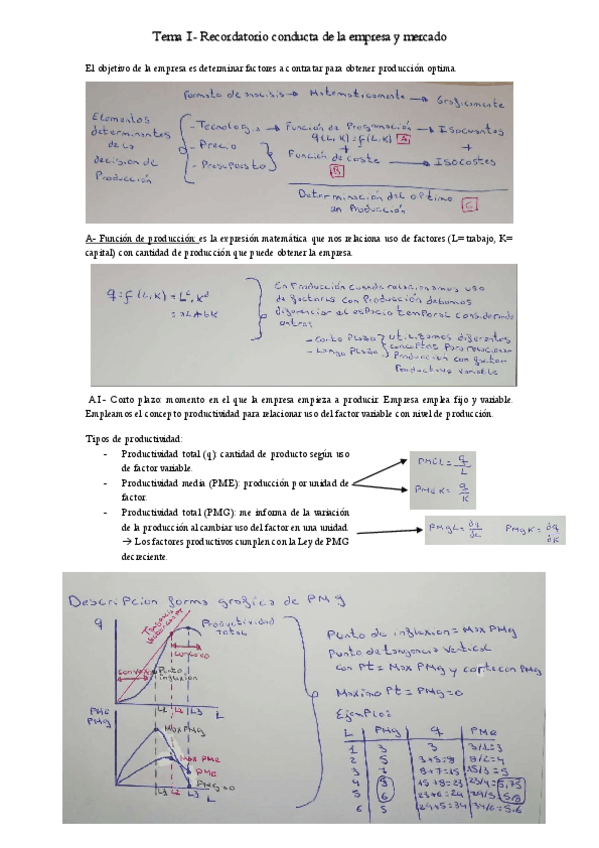 Tema 1- Recordatorio conducta de la empresa y mercado
El objetivo de la empresa es determinar factores a contratar para obtener producción optima.
Formato de análisis → Matemáticamente → Gráficamente
Elementos determinantes de la decisión de Producción
- Tecnología → Función de Producción → Isocuantas
q(L,K)=f(L,K) A
+ +
- Precio
- Presupuesto
Función de coste → Isocostes
B
Determinación del optimo
en Producción C
A- Función de producción es la expresión matemática que nos relaciona uso de factores (L= trabajo, K=
capital) con cantidad de producción que puede obtener la empresa.
q=f(L,K)=
En Producción cuando relacionamos uso
de factores con Producción debemos
diferenciar el espacio temporal considerando
- Corto Plazo
- Largo Plazo
utilizamos diferentes
conceptos para relacionar
Producción con
Productivo variable
A1- Corto plazo: momento en el que la empresa empieza a producir. Empresa emplea fijo y variable.
Empleamos el concepto productividad para relacionar uso del factor variable con nivel de producción.
Tipos de productividad:
- Productividad total (q): cantidad de producto según uso
de factor variable.
- Productividad media (PME): producción por unidad de
factor.
- Productividad total (PMG): me informa de la variación
de la producción al cambiar uso del factor en una unidad.
→ Los factores productivos cumplen con la Ley de PMG
decreciente.
PMeL = q/L
PMeK = q/K
PMgL = ∂q/∂L PMgK = ∂q/∂K
Descripcion forma grafica de PMg
q
Productividad
Total
Convexo
Concavo
Punto
inflexion
L1 L2 L3 L
PMe
PMg
Max PMg
Max PMe
PMe
PMg=0
L1 L2 L3 L
Punto de inflexion = Max PMg
Punto de tangencia vertical
con Pt = Max PMe y corte con PMg
Maximo Pt = PMg=0
Ejemplo:
L PMg q PMe
1 3 3 3/1=3
2 5 3+5=8 8/2=4
3 7 8+7=15 15/3=5
4 15+8=23 23/4=5,75
5 6 23+6=29 29/5=5,8
6 5 29+5=34 34/6=5,6